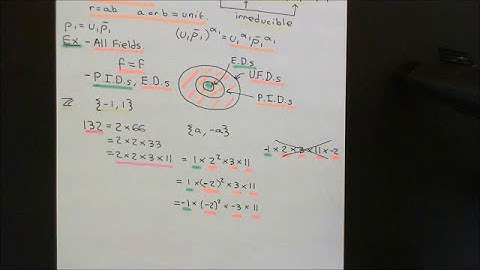 r=ab a or b = unit.
irreducible
p₁ = u₁p̄₁ (u₁p̄₁)^α₁ = u₁^α₁ p̄₁^α₁
Ex - All Fields.
f = f
- P.I.D.s, E.D.s
E.D.s
U.F.D.s
P.I.D.s
ℤ {-1, 1}
132 = 2 × 66 {a, -a}
= 2 × 2 × 33
= 2 × 2 × 3 × 11 = 1 × 2² × 3 × 11
-1 × 2 × 3 × 11 × -2
= 1 × (-2)² × 3 × 11
= -1 × (-2)² × -3 × 11